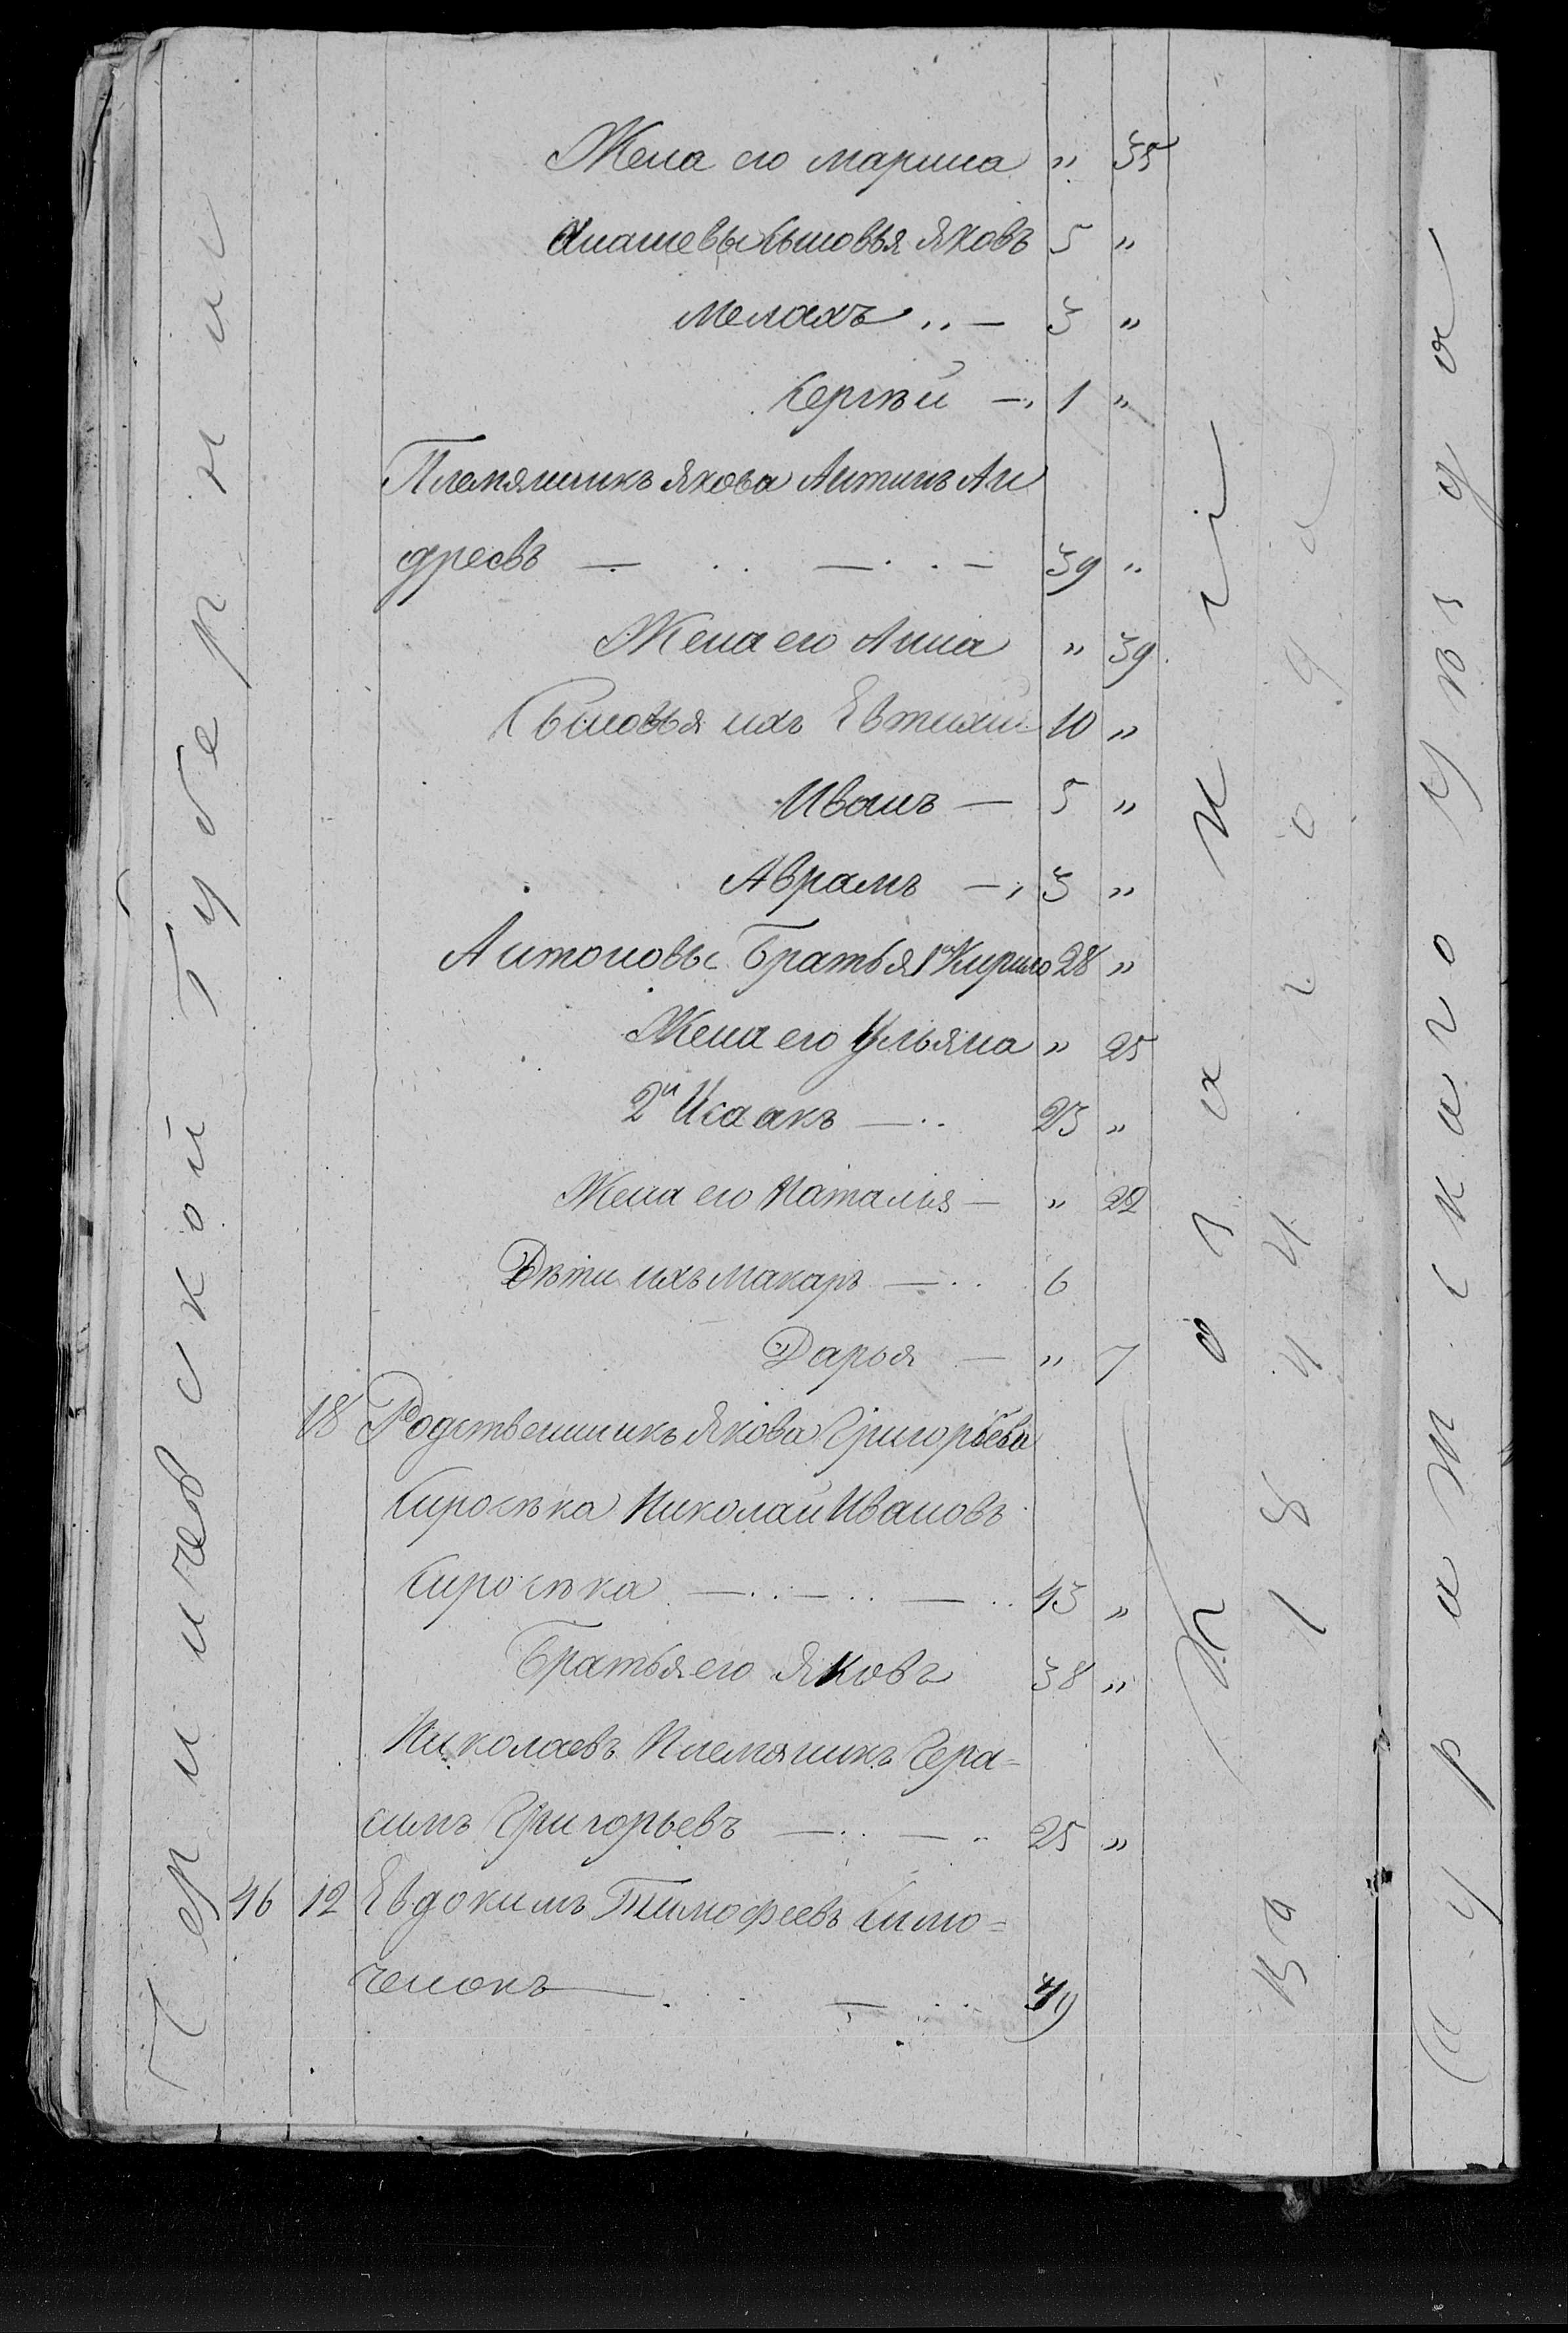 Жена его Марина " 35
Анатевы Сыновья Яковъ 5 "
Мелахъ 3 "
Сергѣй 1 "
Племянникъ Якова Антипъ Ан
дреевъ 39 "
Жена его Анна " 39
Сыновья ихъ Евтихий 10 "
Иванъ 5 "
Аврамъ 3 "
Антоновы Братья 1й Кирило 28 "
Жена его Ульяна " 25
2й Исаакъ 23 "
Жена его Наталия " 22
Дѣти ихъ Макаръ 6
Дарья " 7
18 Родственникъ Якова Григорьева
Сиросѣка Николай Ивановъ
Сиросѣка 43 "
Братья его Яковъ 38 "
Николаевъ Племяникъ Гера=
симъ Григорьевъ 25 "
46 12 Евдокимъ Тимофеевъ Симо=
ченокъ 49
Черниговской Губерніи
Суражскаго Уезда
1844 года